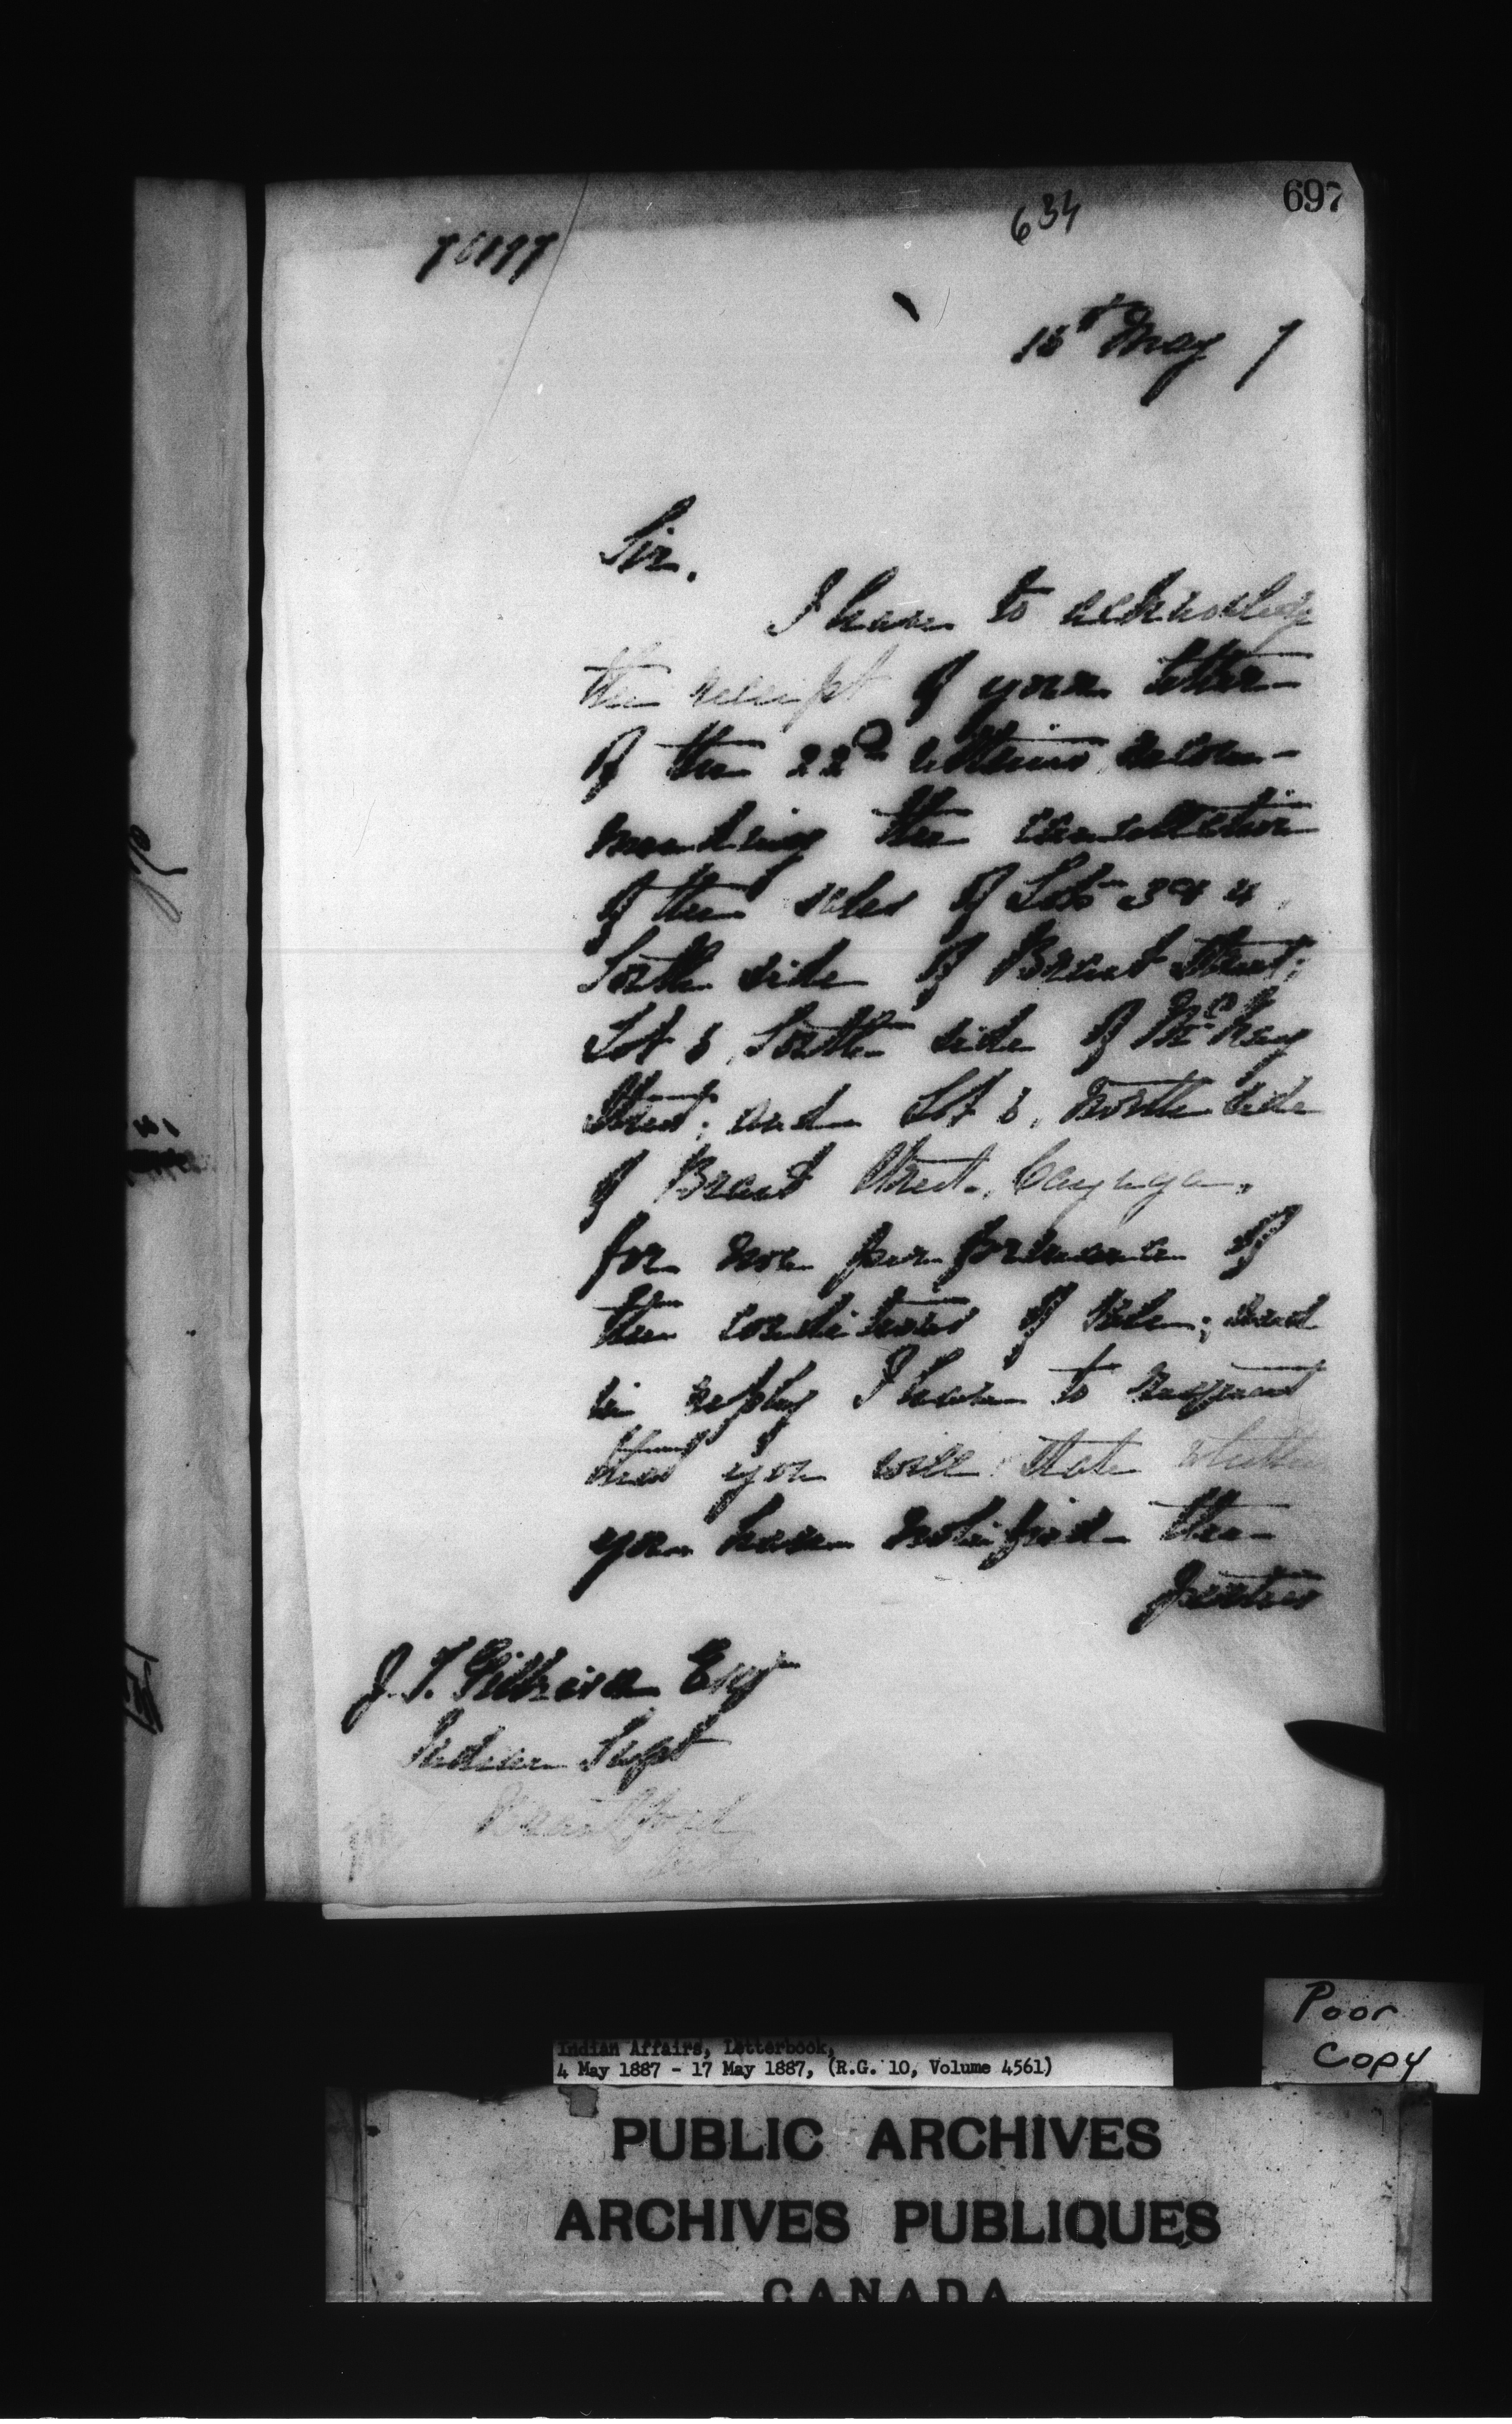 697
634
15th May 7
Sir.
I have to acknowledge
the receipt of your letter
of the 22nd ultimo recom-
mending the cancellation
of the sales of Lots 3 & 4
South side of Brant Street;
Lot 5, South side of McKay
Street; and Lot 5, North side
of Brant Street, Cayuga,
for non performance of
the conditions of sale; and
in reply I have to request
that you will state whether
you have notified the
parties
J. T. Gilkison Esqr
Indian Supt
Brantford
Ont
Poor
Copy
Indian Affairs, Letterbook,
4 May 1887 - 17 May 1887, (R.G. 10, Volume 4561)
PUBLIC ARCHIVES
ARCHIVES PUBLIQUES
CANADA